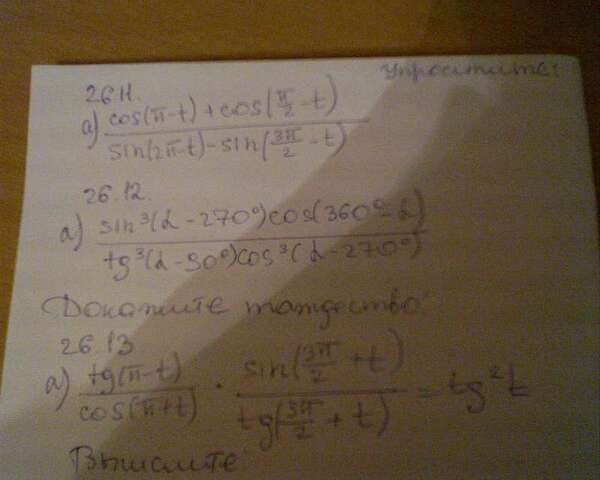 Упростите:
26.11.
а) cos(π-t) + cos(π/2 - t) / sin(2π-t) - sin(3π/2 - t)
26.12.
а) sin³(α - 270°)cos(360° - α) / tg³(α - 90°)cos³(α - 270°)
Докажите тождество:
26.13
а) tg(π-t) / cos(π+t) · sin(3π/2 + t) / tg(3π/2 + t) = tg²t
Вычислите: